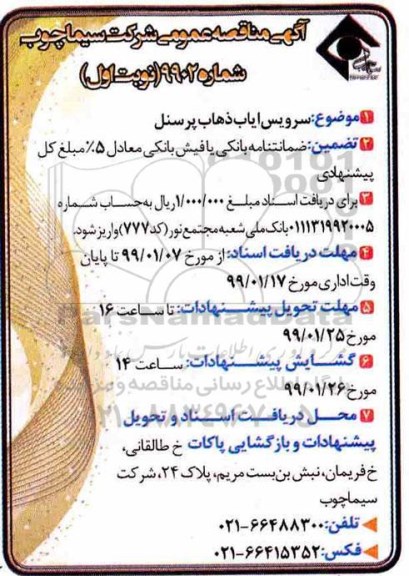 آگهی مناقصه عمومی شرکت سیما چوب
شماره ۹۹۰۲ (نوبت اول)
۱ موضوع: سرویس ایاب ذهاب پرسنل
۲ تضمین: ضمانتنامه بانکی یا فیش بانکی معادل ۵٪ مبلغ کل
پیشنهادی
۳ برای دریافت اسناد مبلغ ۱/۰۰۰/۰۰۰ ریال به حساب شماره
۰۱۱۱۳۱۹۹۲۰۰۰۵ بانک ملی شعبه مجتمع نور (کد ۷۷۷) واریز شود.
۴ مهلت دریافت اسناد: از مورخ ۹۹/۰۱/۰۷ تا پایان
وقت اداری مورخ ۹۹/۰۱/۱۷
۵ مهلت تحویل پیشنهادات: تا ساعت ۱۶
مورخ ۹۹/۰۱/۲۵
۶ گشایش پیشنهادات: ساعت ۱۴
مورخ ۹۹/۰۱/۲۶
۷ محل دریافت اسناد و تحویل
پیشنهادات و بازگشایی پاکات خ طالقانی،
خ فریمان، نبش بن بست مریم، پلاک ۲۴، شرکت
سیما چوب
تلفن: ۰۲۱-۶۶۴۸۸۳۰۰
فکس: ۰۲۱-۶۶۴۱۵۳۵۲
ParsNamadData